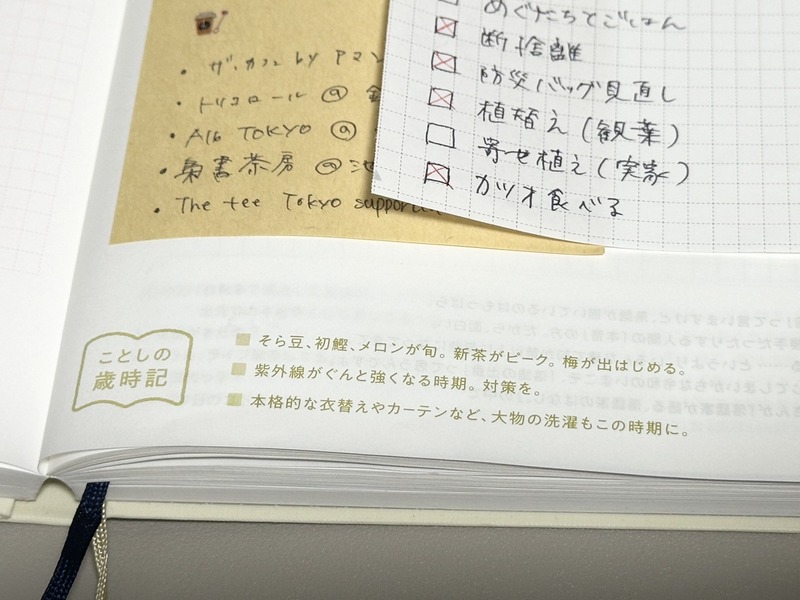 ザ・カフェ by アマン
トリコロール @ 銀
A16 TOKYO @
梟書茶房 @ 池
The tee Tokyo support
断捨離
防災バッグ見直し
植替え(観葉)
寄せ植え(実家)
カツオ食べる
ことしの
歳時記
そら豆、初鰹、メロンが旬。新茶がピーク。梅が出はじめる。
紫外線がぐんと強くなる時期。対策を。
本格的な衣替えやカーテンなど、大物の洗濯もこの時期に。